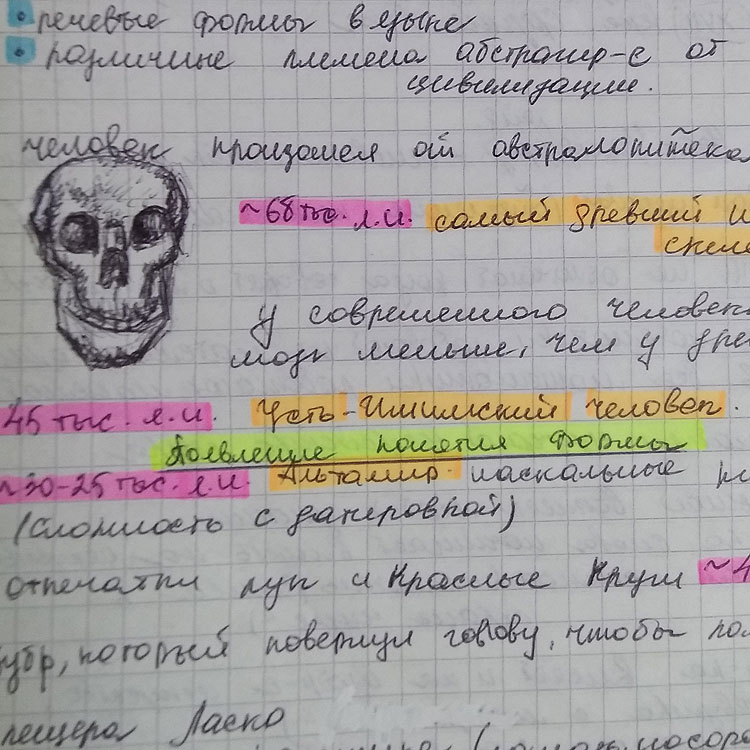 речевые формы в языке
различные племена абстрагир-с от
цивилизации.
человек произошел от австралопитека
~68 тыс. л.н. самый древний
скеле
у современного человека
мозг меньше, чем у дре
45 тыс. л.н. Усть-Ишимский человек.
Появление понятия формы
~30-25 тыс. л.н. Альтамир. наскальные
(сложность с датировкой)
отпечатки рук и красные круги ~4
зубр, который повернул голову, чтобы
пещера Ласко